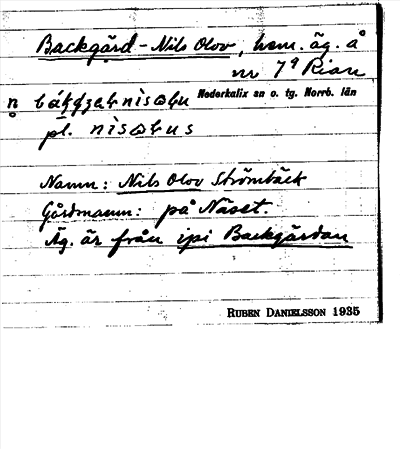 Backgård-Nils Olov, hem. äg. å
nr 7⁹ Rian
Nederkalix sn o. tg. Norrb. län
pl.
Namn: Nils Olov Strömbäck
Gårdnamn: på Näset.
Äg. är från ipi Backgårdan
RUBEN DANIELSSON 1935